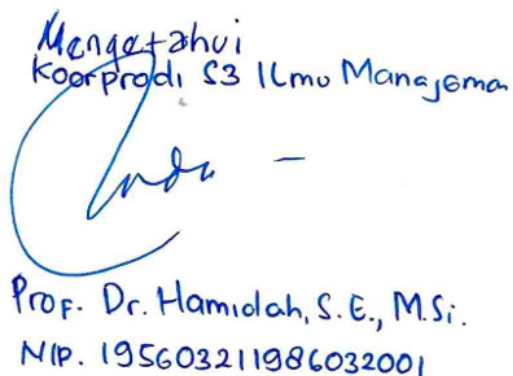 Mengetahui
Koorprodi S3 Ilmu Manajemen
Prof. Dr. Hamidah, S.E., M.Si.
NIP. 195603211986032001